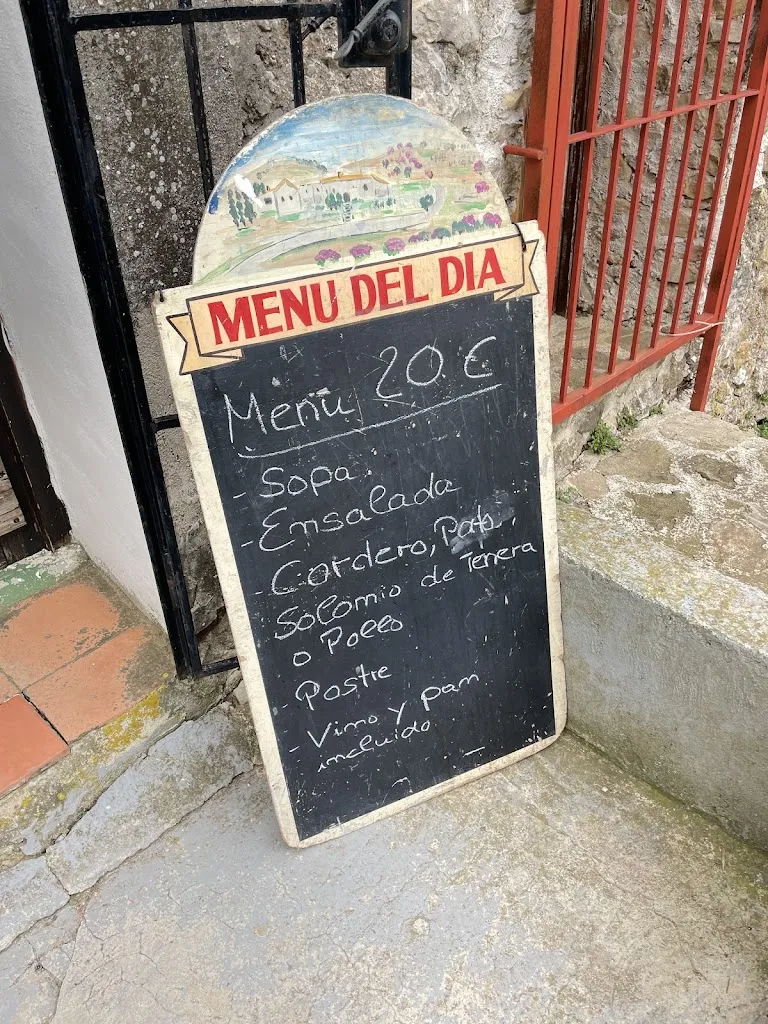 MENU DEL DIA
Menu 20 €
- Sopa
- Ensalada
- Cordero, Pato,
Solomio de Tenera
o Pollo
- Postre
- Vino y pan
incluido